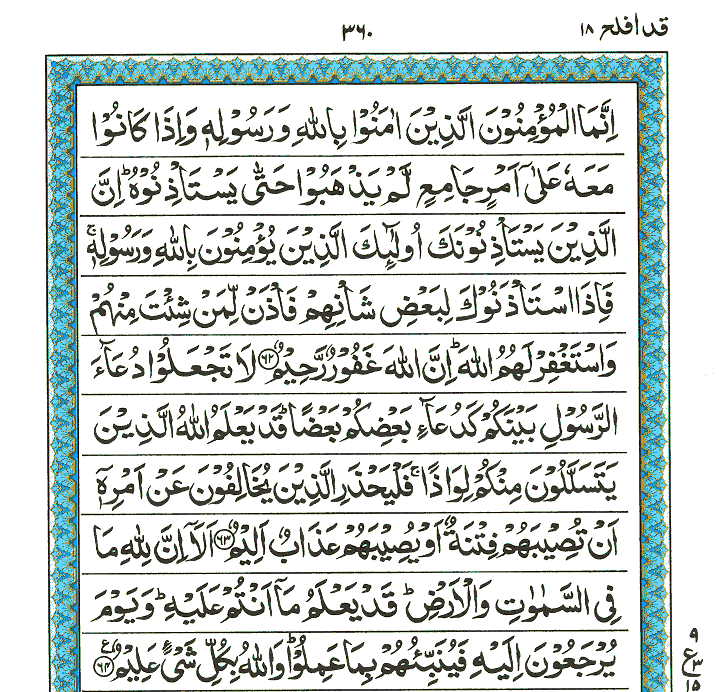 قد افلح ١٨
٣٦٠
اِنَّمَا الْمُؤْمِنُوْنَ الَّذِيْنَ اٰمَنُوْا بِاللّٰهِ وَرَسُوْلِهٖ وَاِذَا كَانُوْا
مَعَهٗ عَلٰٓى اَمْرٍ جَامِعٍ لَّمْ يَذْهَبُوْا حَتّٰى يَسْتَاْذِنُوْهُ ؕ اِنَّ
الَّذِيْنَ يَسْتَاْذِنُوْنَكَ اُولٰٓئِكَ الَّذِيْنَ يُؤْمِنُوْنَ بِاللّٰهِ وَرَسُوْلِهٖ ۚ
فَاِذَا اسْتَاْذَنُوْكَ لِبَعْضِ شَاْنِهِمْ فَاْذَنْ لِّمَنْ شِئْتَ مِنْهُمْ
وَاسْتَغْفِرْ لَهُمُ اللّٰهَ ؕ اِنَّ اللّٰهَ غَفُوْرٌ رَّحِيْمٌ ﴿۶۲﴾ لَا تَجْعَلُوْا دُعَآءَ
الرَّسُوْلِ بَيْنَكُمْ كَدُعَآءِ بَعْضِكُمْ بَعْضًا ؕ قَدْ يَعْلَمُ اللّٰهُ الَّذِيْنَ
يَتَسَلَّلُوْنَ مِنْكُمْ لِوَاذًا ۚ فَلْيَحْذَرِ الَّذِيْنَ يُخَالِفُوْنَ عَنْ اَمْرِهٖٓ
اَنْ تُصِيْبَهُمْ فِتْنَةٌ اَوْ يُصِيْبَهُمْ عَذَابٌ اَلِيْمٌ ﴿۶۳﴾ اَلَاۤ اِنَّ لِلّٰهِ مَا
فِى السَّمٰوٰتِ وَالْاَرْضِ ؕ قَدْ يَعْلَمُ مَاۤ اَنْتُمْ عَلَيْهِ ؕ وَيَوْمَ
يُرْجَعُوْنَ اِلَيْهِ فَيُنَبِّئُهُمْ بِمَا عَمِلُوْا ؕ وَاللّٰهُ بِكُلِّ شَىْءٍ عَلِيْمٌ ﴿۶۴﴾ ع
٩
ع ٣
١٥